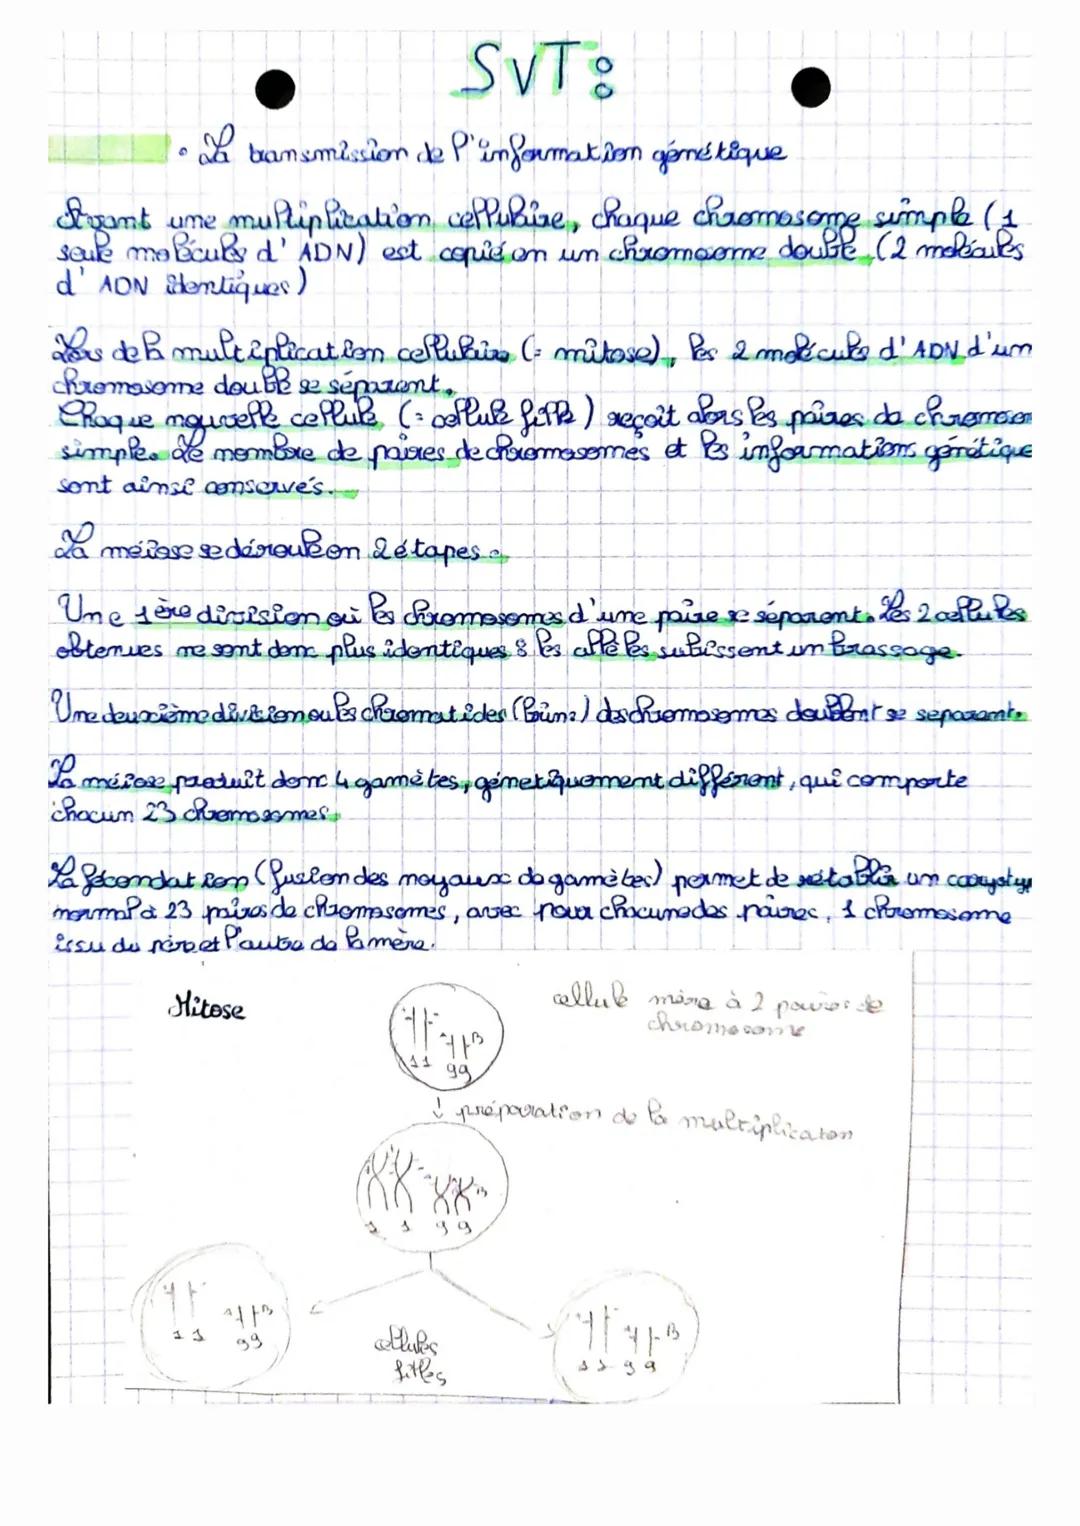 SVT:
• La transmission de l'information génétique
Avant une multiplication cellulaire, chaque chromosome simple (1
seule molécules d'ADN) est copié en un chromosome double (2 molécules
d'ADN identiques)
Lors de la multiplication cellulaire (= mitose), les 2 molécules d'ADN d'un
chromosome double se séparent.
Chaque nouvelle cellule (= cellule fille) reçoit alors les paires de chromosom
simple. Le nombre de paires de chromosomes et les informations génétique
sont ainsi conservés.
La méiose se déroule en 2 étapes :
Une 1ère division où les chromosomes d'une paire se séparent. Les 2 cellules
obtenues ne sont donc plus identiques : les allèles subissent un brassage.
Une deuxième division ou les chromatides (brins) des chromosomes doublent se séparent.
La méiose produit donc 4 gamètes, génétiquement différent, qui comporte
chacun 23 chromosomes.
La fécondation (fusion des noyaux de gamètes) permet de rétablir un caryotyp
normal à 23 paires de chromosomes, avec pour chacune des paires, 1 chromosome
issu du père et l'autre de la mère.
Mitose
cellule mère à 2 paires de
chromosome
A B
1 1 9 9
↓ préparation de la multiplicaton
1 1 9 9
A B
1 1 9 9
cellules
filles
A B
1 1 9 9